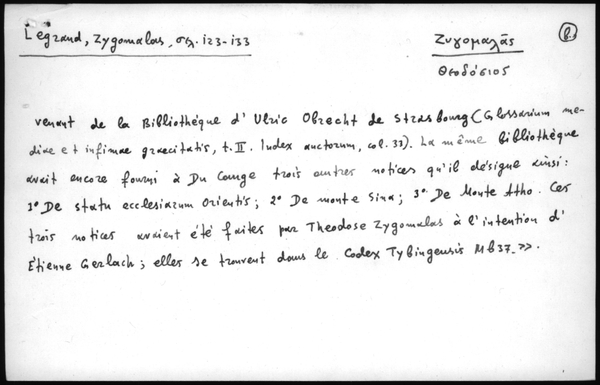 Legrand, Zygomalas, σελ. 123-133
Ζυγομαλᾶς
Θεοδόσιος
venant de la Bibliothèque d' Ulric Obrecht de Strasbourg (Glossarium me-
diae et infimae graecitatis, t. II. Index auctorum, col. 33). La même bibliothèque
avait encore fourni à Du Cange trois autres notices qu'il désigne ainsi:
1° De statu ecclesiarum Orientis; 2° De monte Sina; 3° De Monte Atho. Ces
trois notices avaient été faites par Theodose Zygomalas à l'intention d'
Étienne Gerlach; elles se trouvent dans le Codex Tybingensis Mb37.>>.